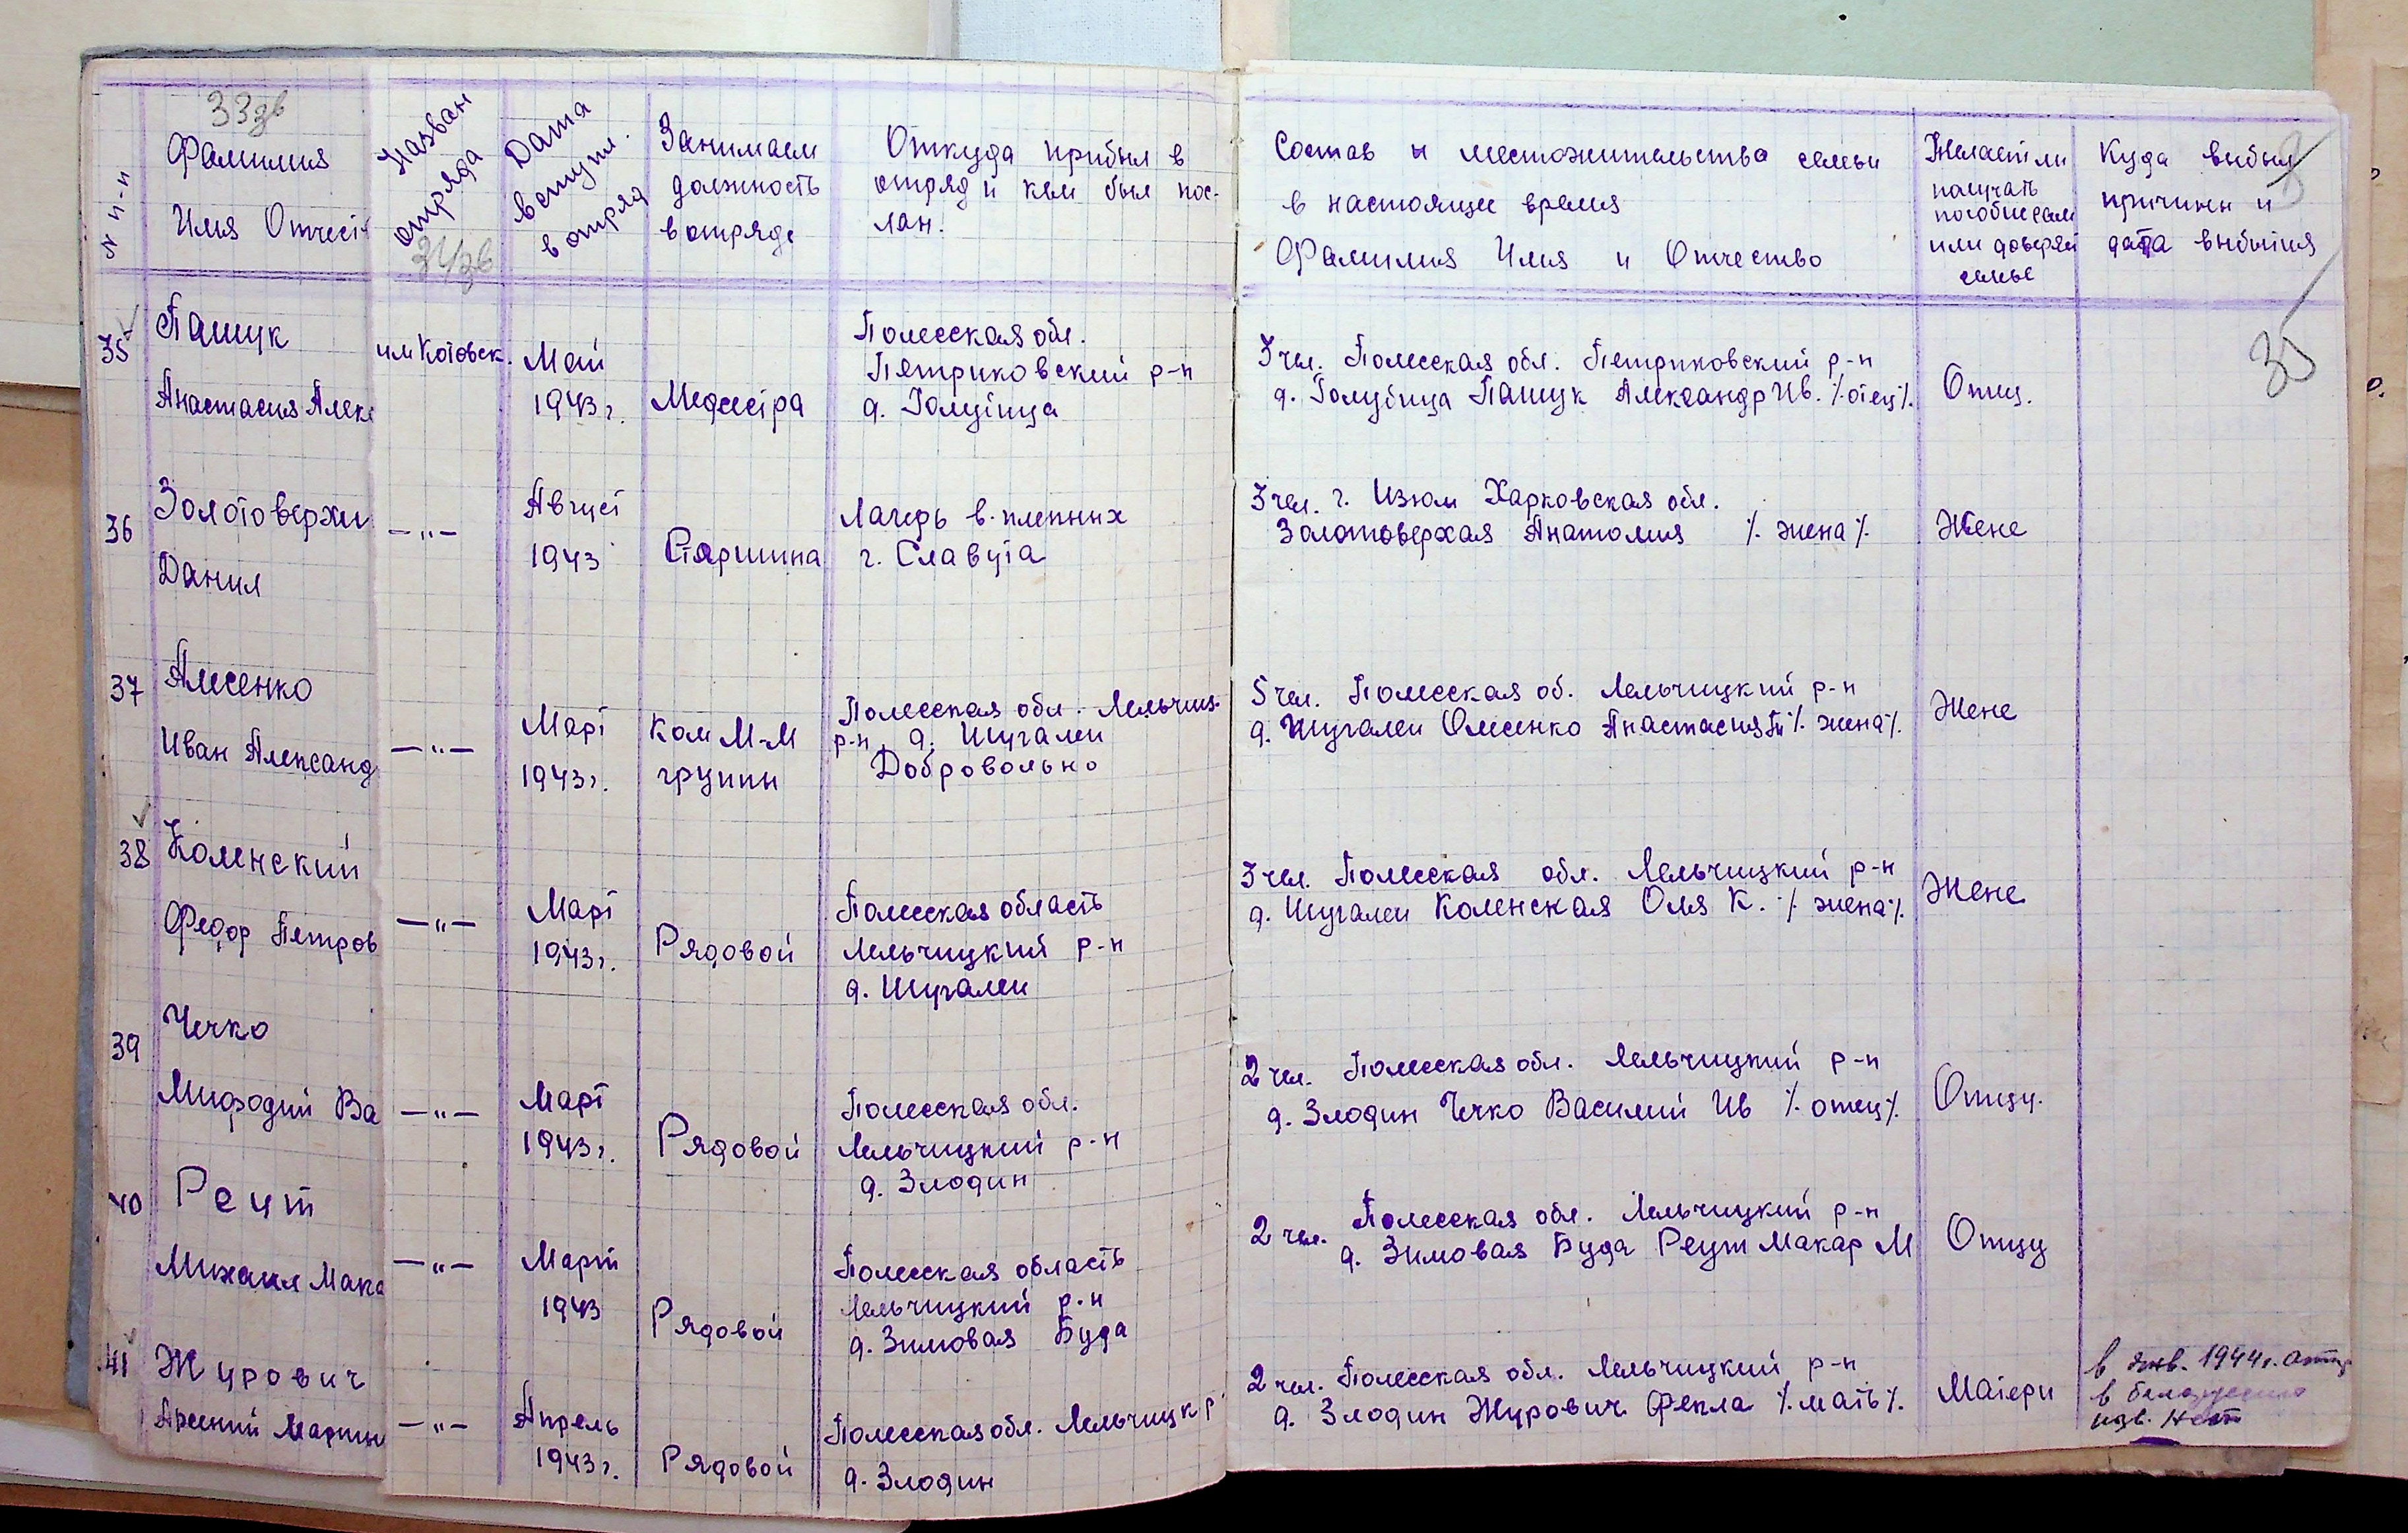 33зв
N п-п
Фамилия
Имя Отчест
Назван
отряда
34зв
Дата
вступл.
в отряд
Занимаем
должность
в отряде
Откуда прибыл в
отряд и кем был пос-
лан.
Состав и местожительство семьи
в настоящее время
Фамилия Имя и Отчество
Желает ли
получать
пособие сам
или доверяй
семье
Куда выбыл
причины и
дата выбытия
35
35
Пашук
Анастасия Алекс
им Котовск.
Май
1943г.
Медсестра
Полесская обл.
Петриковский р-н
д. Голубица
3 чел. Полесская обл. Петриковский р-н
д. Голубица Пашук Александр Ив. /. отец /.
Отцу.
36
Золотоверхи
Данил
— " —
Август
1943
Старшина
Лагерь в. пленных
г. Славута
3 чел. г. Изюм Харковская обл.
Золотоверхая Анатолия /. жена /.
Жене
37
Алсенко
Иван Александ
— " —
Март
1943г.
Ком М-М
группы
Полесская обл. Лельчиц.
р-н д. Шугалеи
Добровольно
5 чел. Полесская об. Лельчицкий р-н
д. Шугалеи Олсенко Анастасия /. жена /.
Жене
38
Коленский
Федор Петров
— " —
Март
1943г.
Рядовой
Полесская область
Лельчицкий р-н
д. Шугалеи
3 чел. Полесская обл. Лельчицкий р-н
д. Шугалеи Коленская Оля К. /. жена /.
Жене
39
Чечко
Мифодий Ва
— " —
Март
1943г.
Рядовой
Полесская обл.
Лельчицкий р-н
д. Злодин
2 чел. Полесская обл. Лельчицкий р-н
д. Злодин Чечко Василий Ив /. отец /.
Отцу.
40
Реут
Михаил Мака
— " —
Март
1943
Рядовой
Полесская область
Лельчицкий р-н
д. Зимовая Буда
2 чел. Полесская обл. Лельчицкий р-н
д. Зимовая Буда Реут Макар М
Отцу
41
Журович
Арсений Мартин
— " —
Апрель
1943г.
Рядовой
Полесская обл. Лельчицк р
д. Злодин
2 чел. Полесская обл. Лельчицкий р-н
д. Злодин Журович Фекла /. мать /.
Матери
в янв. 1944г.
в